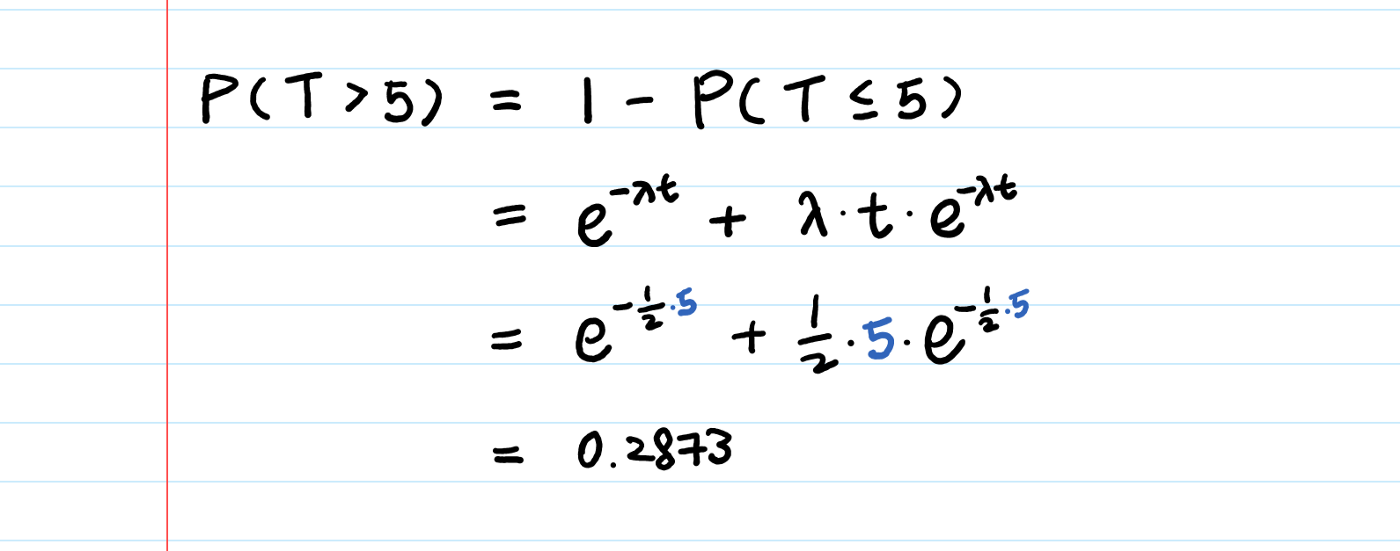 P(T > 5) = 1 - P(T ≤ 5)
= e^{-λt} + λ · t · e^{-λt}
= e^{-\frac{1}{2}·5} + \frac{1}{2} · 5 · e^{-\frac{1}{2}·5}
= 0.2873